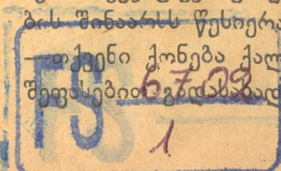 ბის შინაარსს წესიერა
— თქვენი ქონება ქალ
შეფასებით გადასახად
FS
6702
1